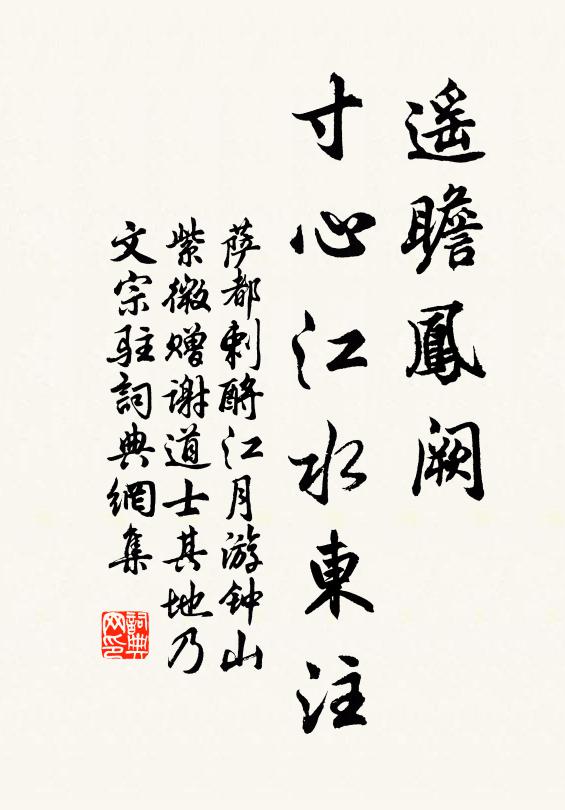 遥瞻鳳闕
寸心江水東注
萨都剌酹江月游钟山
紫微赠谢道士其地乃
文宗駐詞典網集
詞典网印